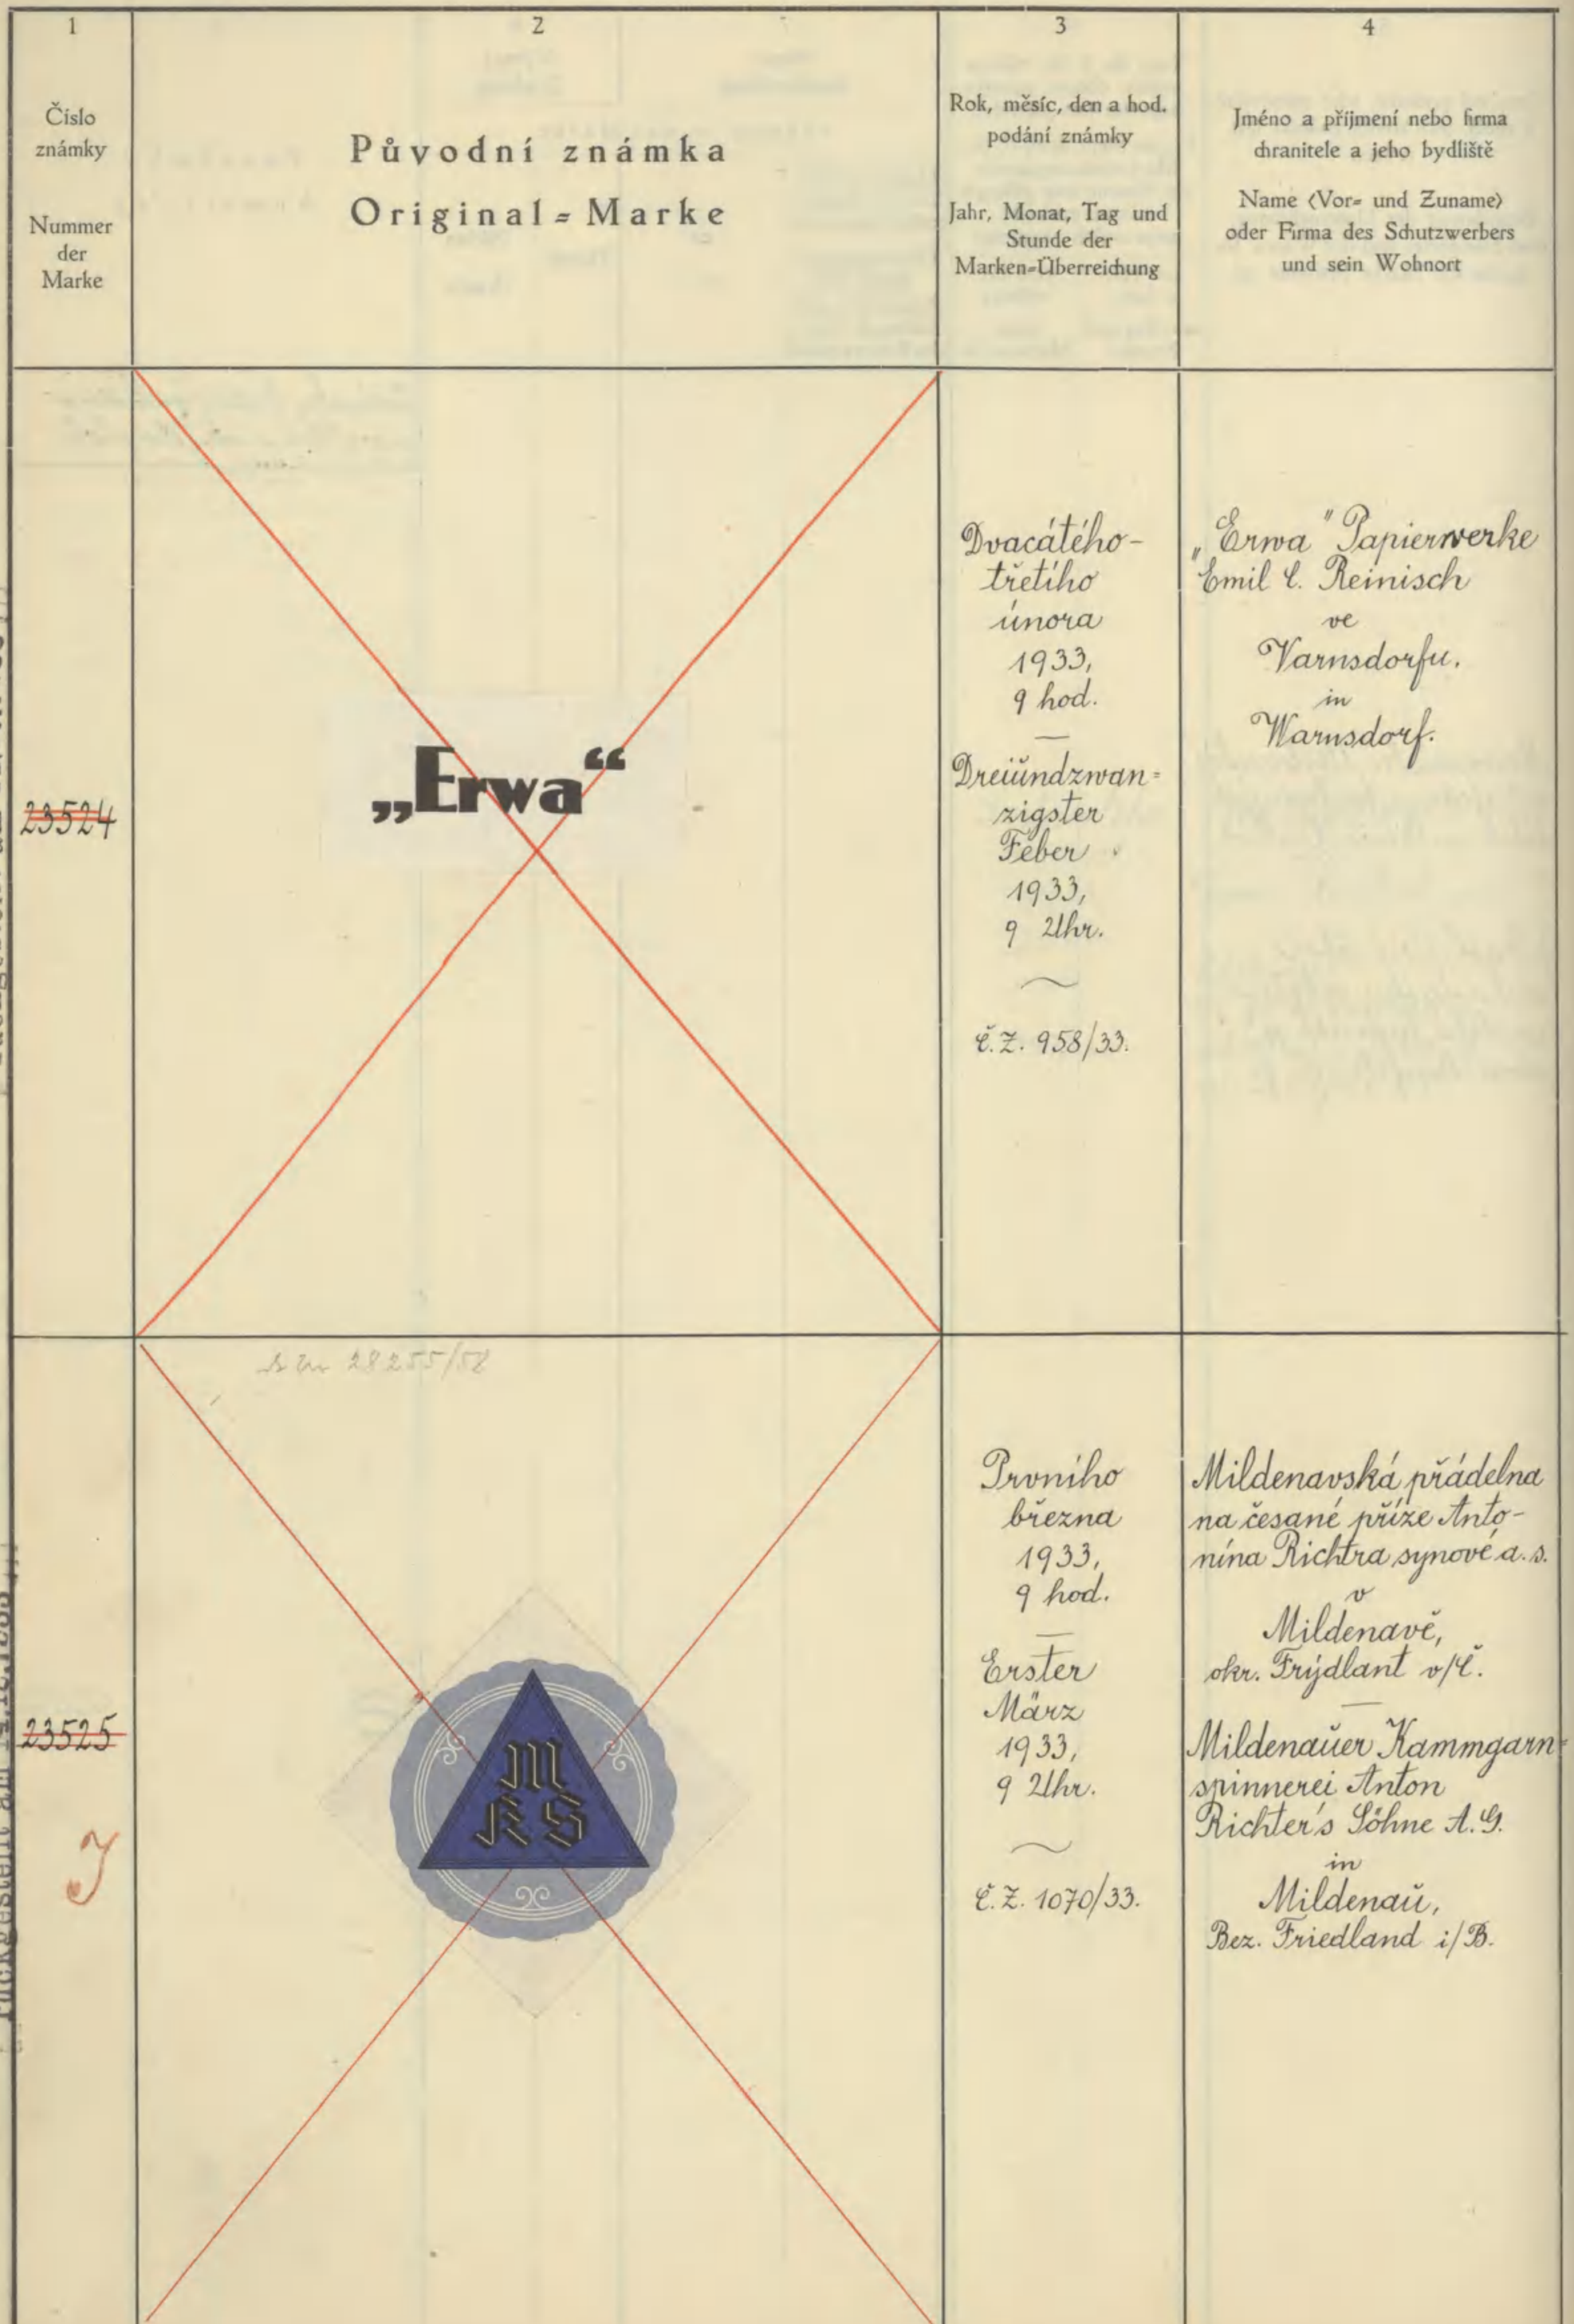 1
2
3
4
Číslo
známky
Nummer
der
Marke
Původní známka
Original-Marke
Rok, měsíc, den a hod.
podání známky
Jahr, Monat, Tag und
Stunde der
Marken-Überreichung
Jméno a příjmení nebo firma
chranitele a jeho bydliště
Name (Vor- und Zuname)
oder Firma des Schutzwerbers
und sein Wohnort
23524
„Erwa“
Dvacátého-
třetího
února
1933,
9 hod.
—
Dreiundzwan=
zigster
Feber
1933,
9 Uhr.
Č.Z. 958/33.
„Erwa" Papierwerke
Emil C. Reinisch
ve
Varnsdorfu.
in
Warnsdorf.
28255/58
23525
J
M
KS
Prvního
března
1933,
9 hod.
—
Erster
März
1933,
9 Uhr.
Č.Z. 1070/33.
Mildenavská přádelna
na česané příze Anto-
nína Richtra synové a.s.
v
Mildenavě,
okr. Frýdlant v/Č.
—
Mildenauer Kammgarn=
spinnerei Anton
Richter's Söhne A.G.
in
Mildenau,
Bez. Friedland i/B.